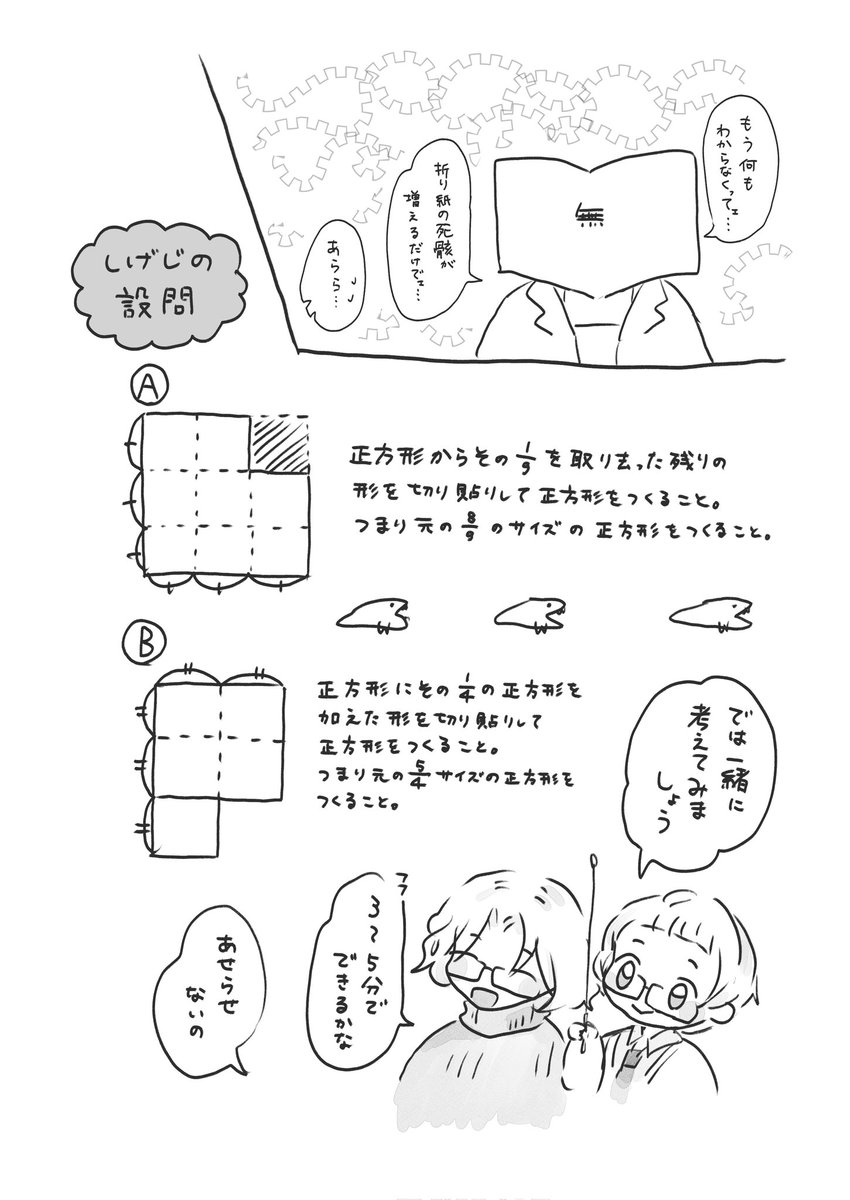 もう何も
わからなくってェ…
無
折り紙の死骸が
増えるだけでェ…
あらら…
しげじの
設問
A
正方形からその1/9を取り去った残りの
形を切り貼りして正方形をつくること。
つまり元の8/9のサイズの正方形をつくること。
B
正方形にその1/4の正方形を
加えた形を切り貼りして
正方形をつくること。
つまり元の5/4サイズの正方形を
つくること。
では一緒に
考えてみま
しょう
フフ
3〜5分で
できるかな
あせらせ
ないの